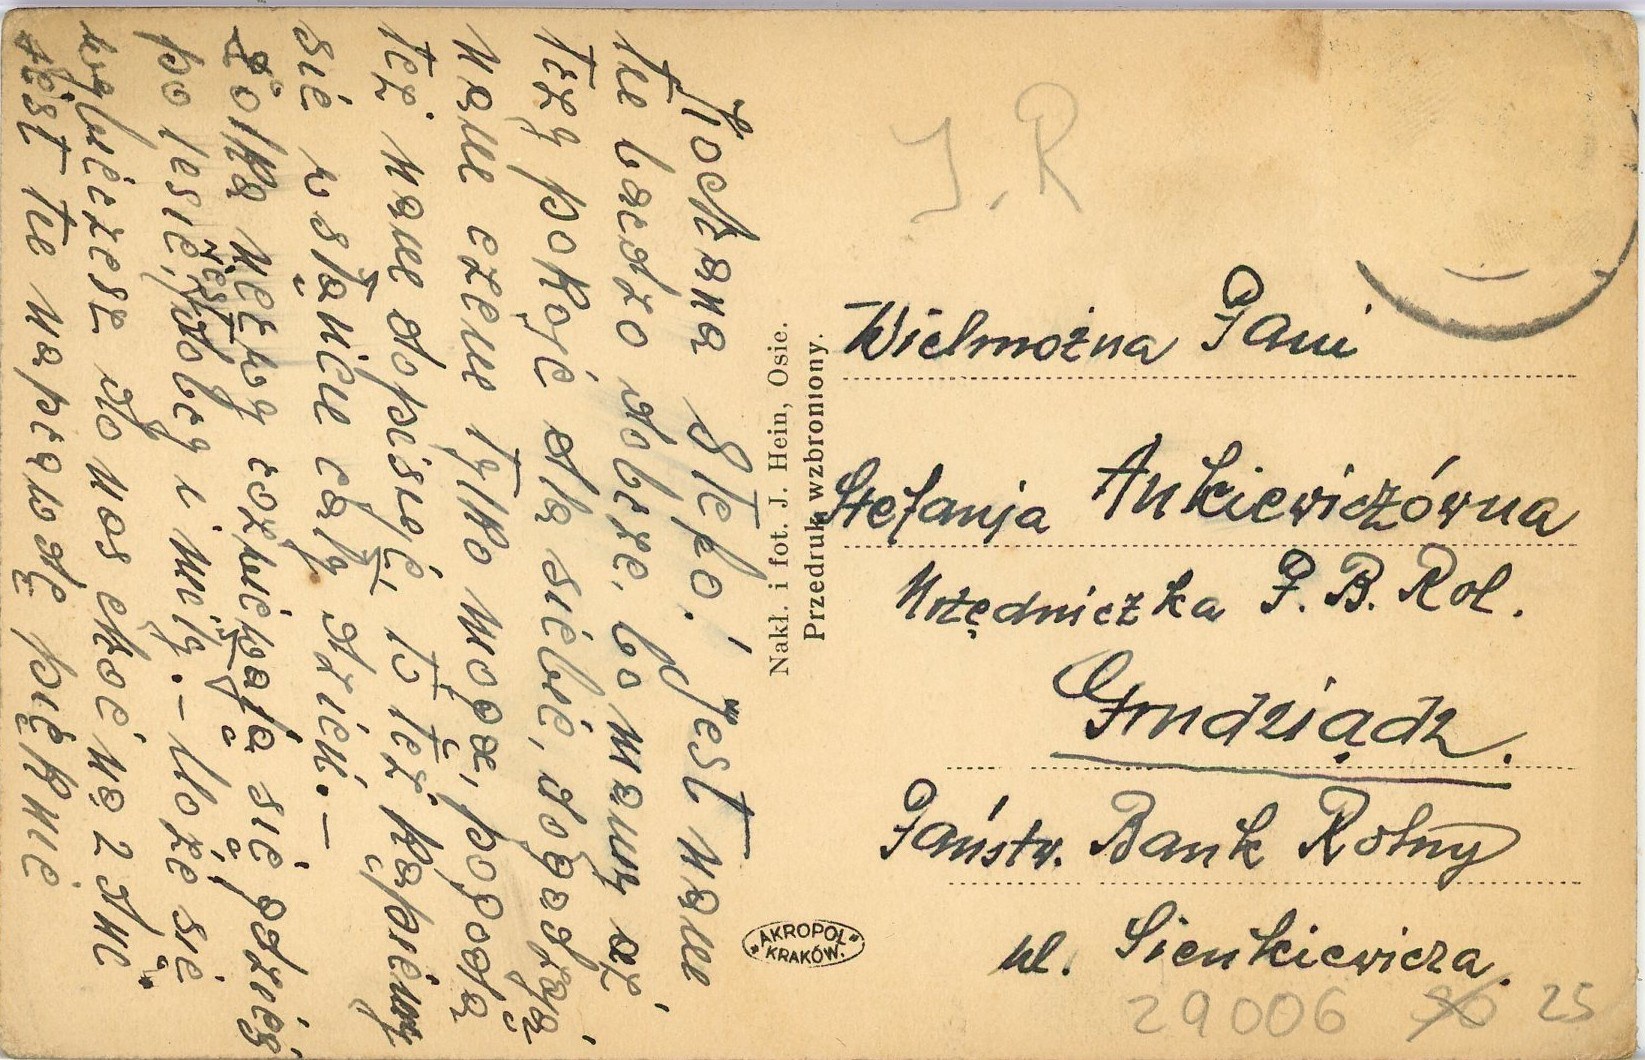 Kochana Stefo! Jest nam
tu bardzo dobrze, bo mamy aż
trzy pokoje dla siebie, dogadzają
nam czem tylko mogą, pogoda
też nam dopisuje, to też kąpiemy
się w słońcu cały dzień. –
Zośka
po lesie, jest zdrowy i miły. – Może się
wybierzesz do nas choć na 2 dni.
Jest tu naprawdę pięknie
Nakł. i fot. J. Hein, Osie.
Przedruk wzbroniony.
"AKROPOL"
KRAKÓW.
J. R
Wielmożna Pani
Stefanja Ankiewiczówna
Urzędniczka P. B. Rol.
Grudziądz.
Państw. Bank Rolny
ul. Sienkiewicza
29006 50 25